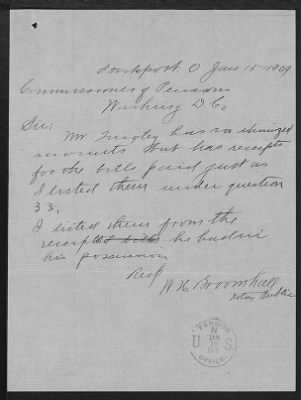 Lockport O Jan 15 - 1909
Commissioner of Pensions
Washing D.C.
Sir:
Mr has no itemized
accounts but has receipts
for the bills paid just as
I listed them under question
33.
I listed them from the
receipted bills he had in
his possession
Resp
W H Broomhall
Notary Public
PENSION
IN
JAN
U S
OFFICE